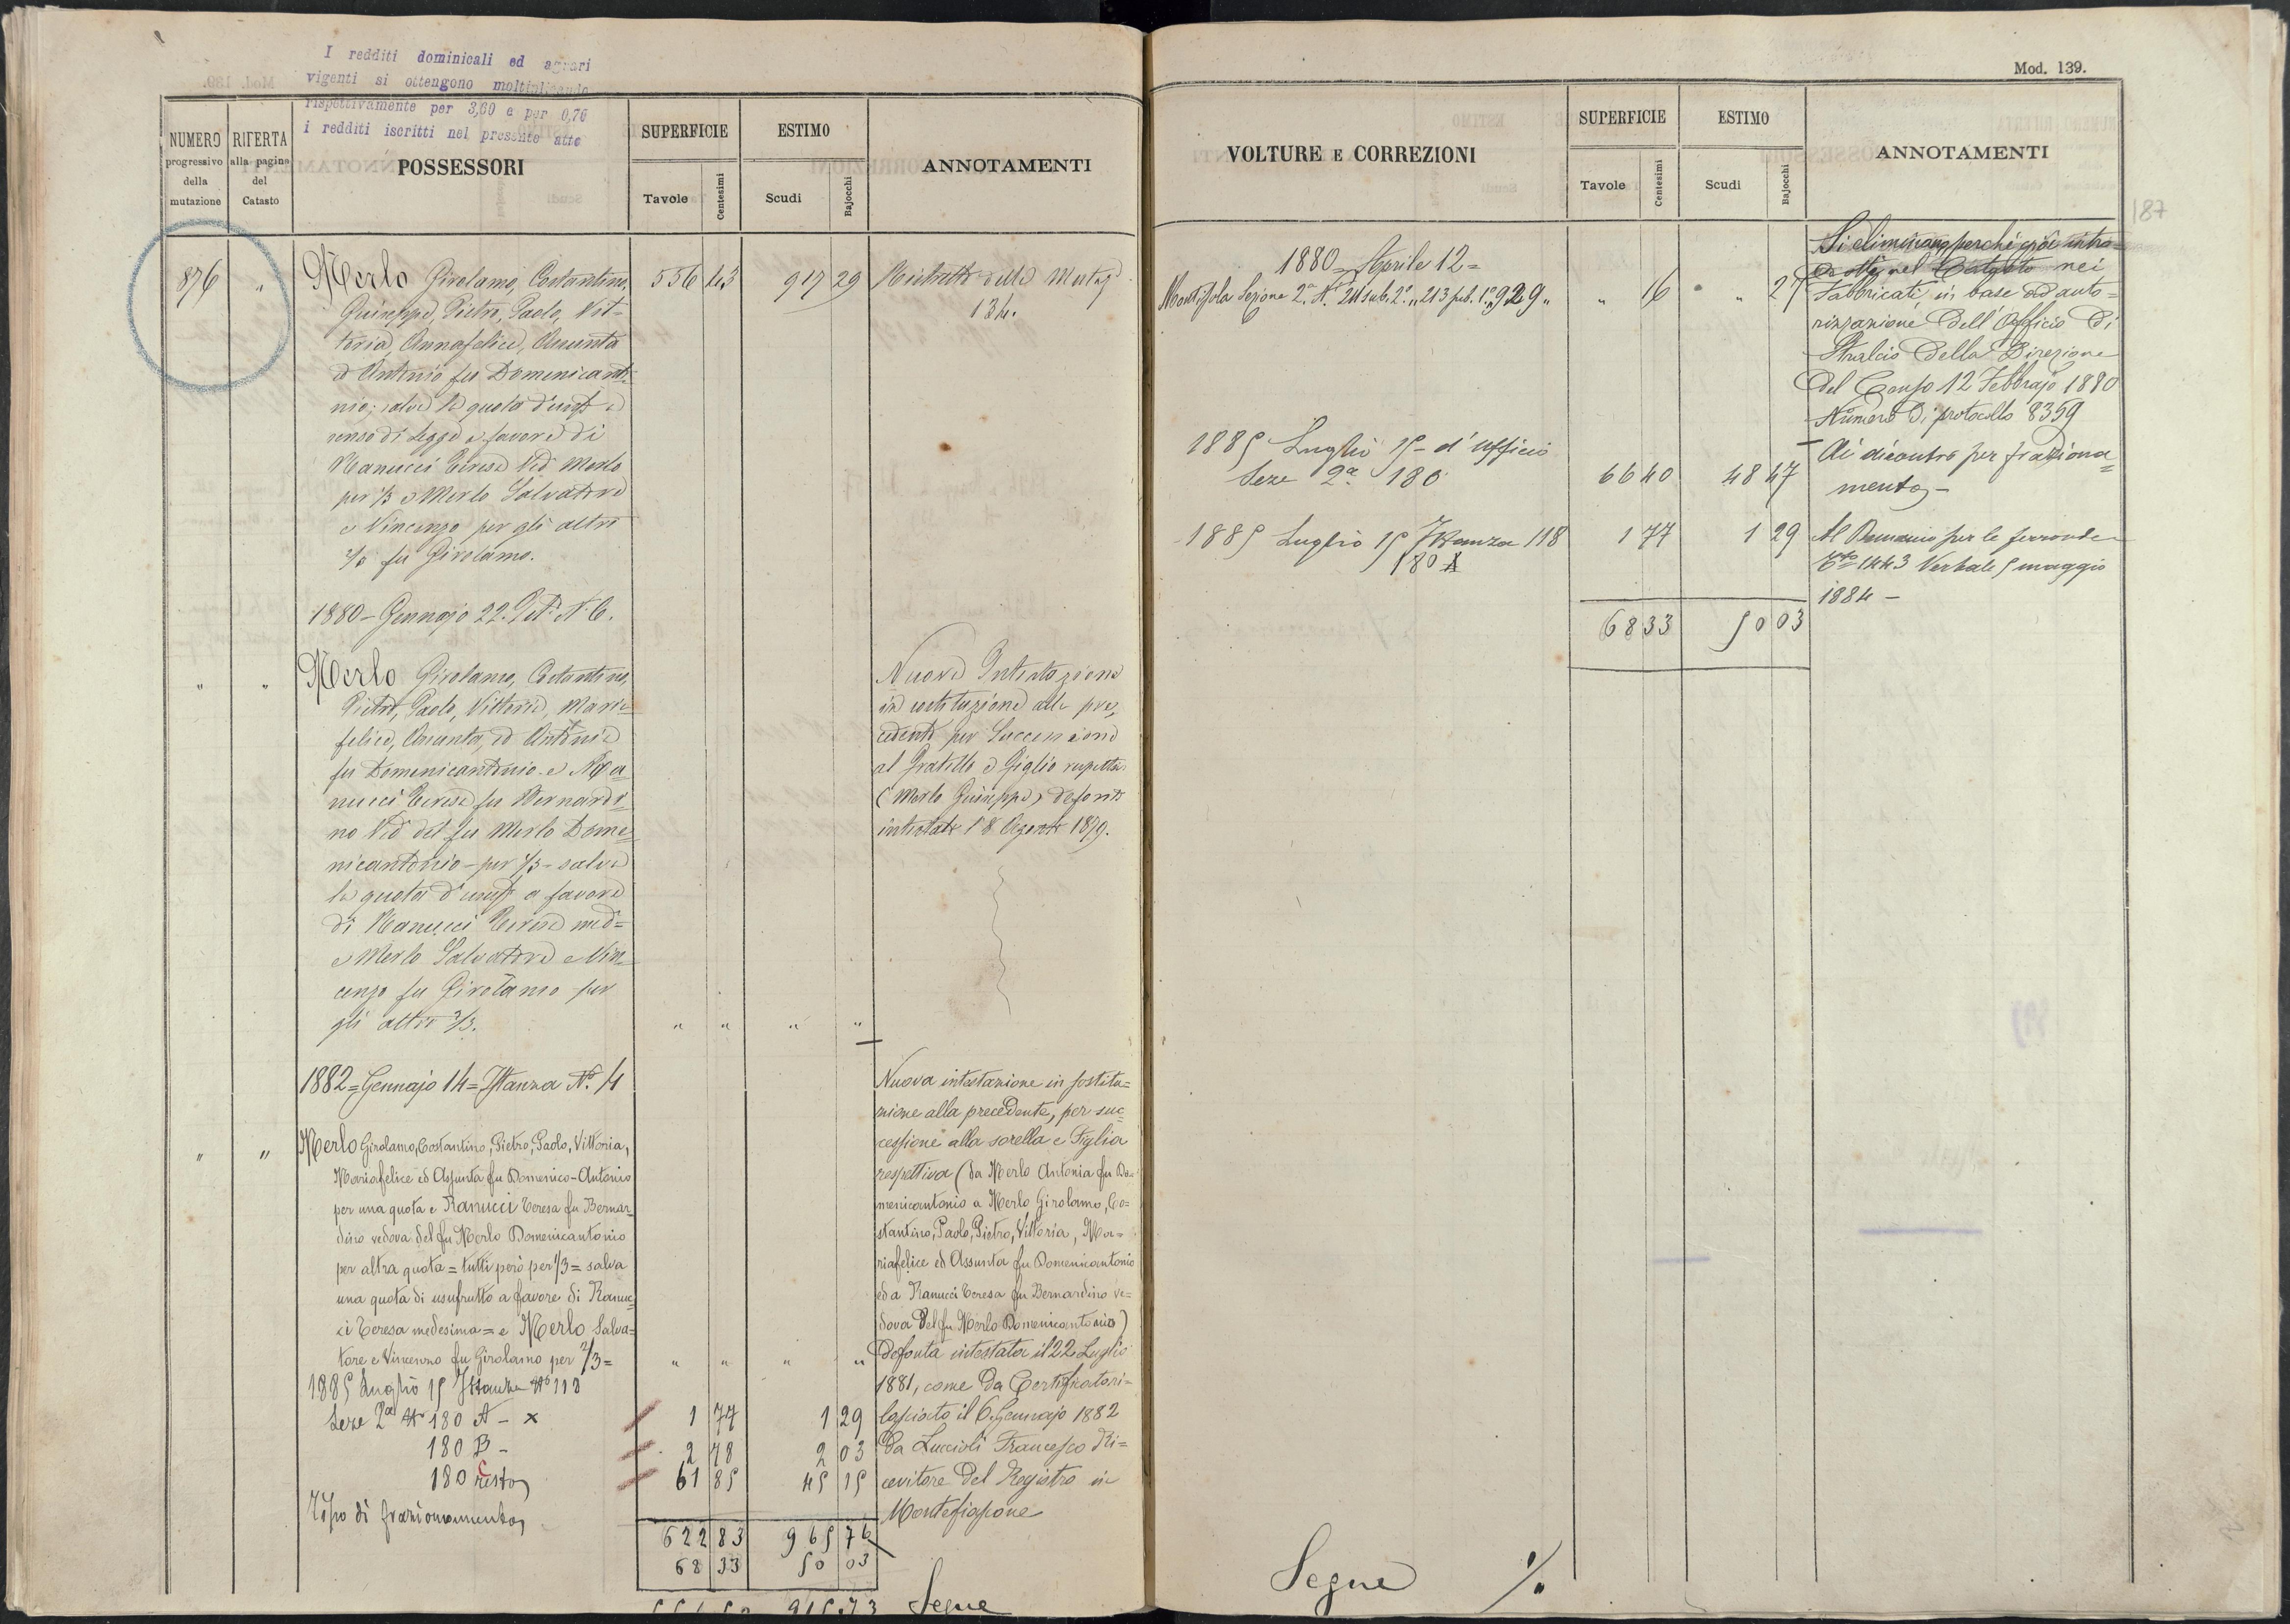 I redditi dominicali ed agrari
vigenti si ottengono moltiplicando
rispettivamente per 3,60 e per 0,76
i redditi iscritti nel presente atto
NUMERO progressivo della mutazione
RIFERTA alla pagina del Catasto
POSSESSORI
SUPERFICIE
Tavole Centesimi
ESTIMO
Scudi Bajocchi
ANNOTAMENTI
876 " Merlo Girolamo, Costantino, 556 43 917 29
Giuseppe, Pietro, Paolo, Vit-
toria, Annafelice, Assunta
ed Antonio fu Domenicanto-
nio; salva la quota d'usuf a
senso di Legge a favore di
Ranucci Teresa Ved Merlo
per 1/3 e Merlo Salvatore
e Vincenzo per gli altri
2/3 fu Girolamo.
134.
1880 - Gennajo 22. N. 6.
" " Merlo Girolamo, Costantino,
Pietro, Paolo, Vittoria, Maria
felice, Assunta, ed Antonia
fu Domenicantonio e Ra
nucci Teresa fu Bernardi
no Ved del fu Merlo Dome
nicantonio - per 1/3 - salva
la quota d'usuf a favore
di Ranucci Teresa med=
e Merlo Salvatore e Vin
cenzo fu Girolamo per
gli altri 2/3. " " " "
Nuova Intestazione
in sostituzione alla pre
cedente per Successione
al Fratello e Figlio rispetto
(Merlo Giuseppe) defonto
intestato l'8 Agosto 1879.
1882 = Gennajo 14 = Istanza N.° 4
" " Merlo Girolamo, Costantino, Pietro, Paolo, Vittoria,
Mariafelice ed Assunta fu Domenico-Antonio
per una quota e Ranucci Teresa fu Bernar
dino vedova del fu Merlo Domenicantonio
per altra quota = tutti però per 1/3 = salva
una quota di usufrutto a favore di Ranuc
ci Teresa medesima = e Merlo Salva=
tore e Vincenzo fu Girolamo per 2/3 = " " " "
Nuova intestazione in sostitu=
zione alla precedente, per suc
cessione alla sorella e Figlia
respettiva (da Merlo Antonia fu Do-
menicantonio a Merlo Girolamo, Co=
stantino, Paolo, Pietro, Vittoria, Ma=
riafelice ed Assunta fu Domenicantonio
ed a Ranucci Teresa fu Bernardino ve=
dova del fu Merlo Domenicantonio)
defonta intestata il 22 Luglio
1881, come da Certificato ri=
lasciato il 6. Gennajo 1882
da Luccioli Francesco Ri=
cevitore del Registro in
Montefiascone
1885 Luglio 15 Istanza N° 118
Seze 2a N 180 A - x 1 77 1 29
180 B - 2 78 2 03
180 C resto 61 85 45 15
Tipo di frazionamento
622 83 965 76
68 33 50 03
915.73 Segue
Mod. 139.
VOLTURE E CORREZIONI
SUPERFICIE
Tavole Centesimi
ESTIMO
Scudi Bajocchi
ANNOTAMENTI
187
1880 = Aprile 12 =
Sezione 2.a N.° 211 sub. 2°. " 213 sub. 1.° 929 " " 16 " 27
Si eliminano, perché già intro=
dotte nel Catasto nei
Fabbricati in base ad auto=
rizzazione dell'Officio di
Stralcio della Direzione
del Censo 12 Febbrajo 1880
Numero di protocollo 8359
1885 Luglio 15 - d'ufficio
Seze 2a 180 66 40 48 47
Al dicontro per fraziona=
mento -
1885 Luglio 15 Istanza 118 1 77 1 29
180 A
Al Demanio per le ferrovie
1443 Verbale 5 maggio
1884 -
68 33 50 03
Segue %